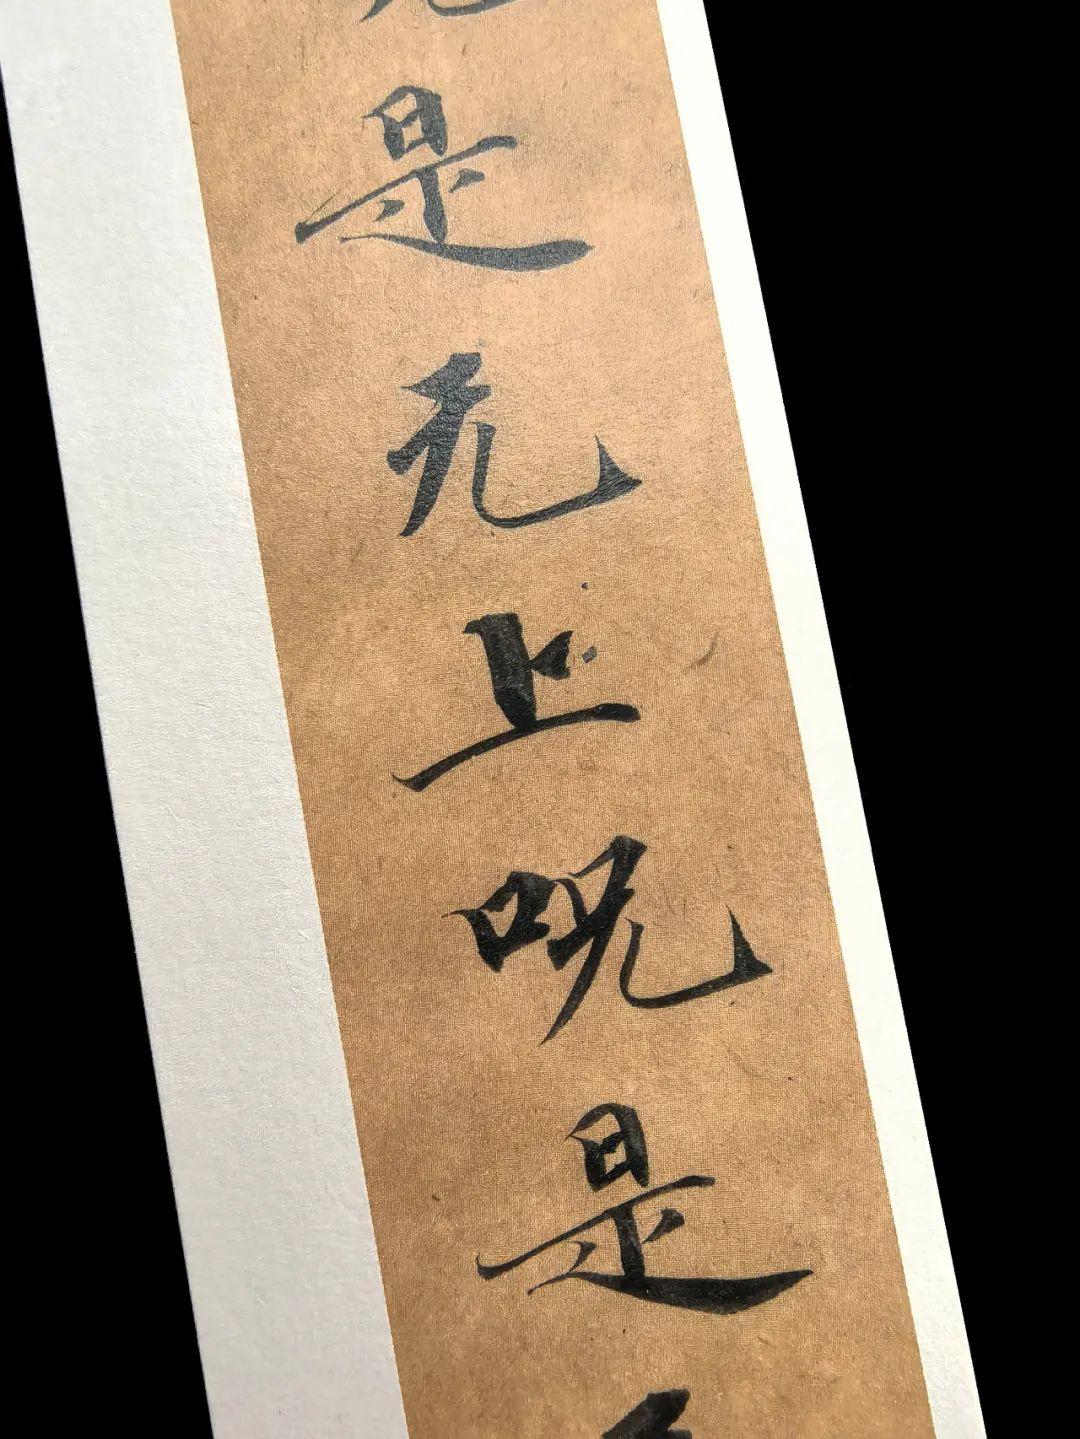 是无上呪是